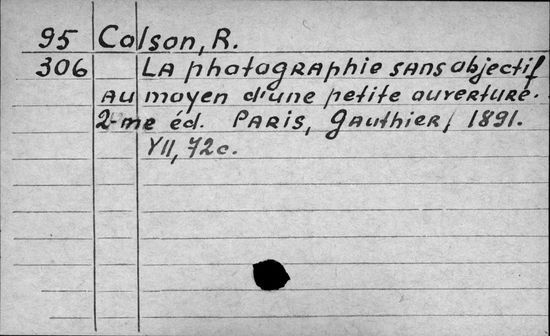 95 Colson, R.
306 LA photogRAphie sANS objectif
AU moyen d'une petite ouverture.
2-me éd. PARIS, GAUthiER, 1891.
VII, 72 c.